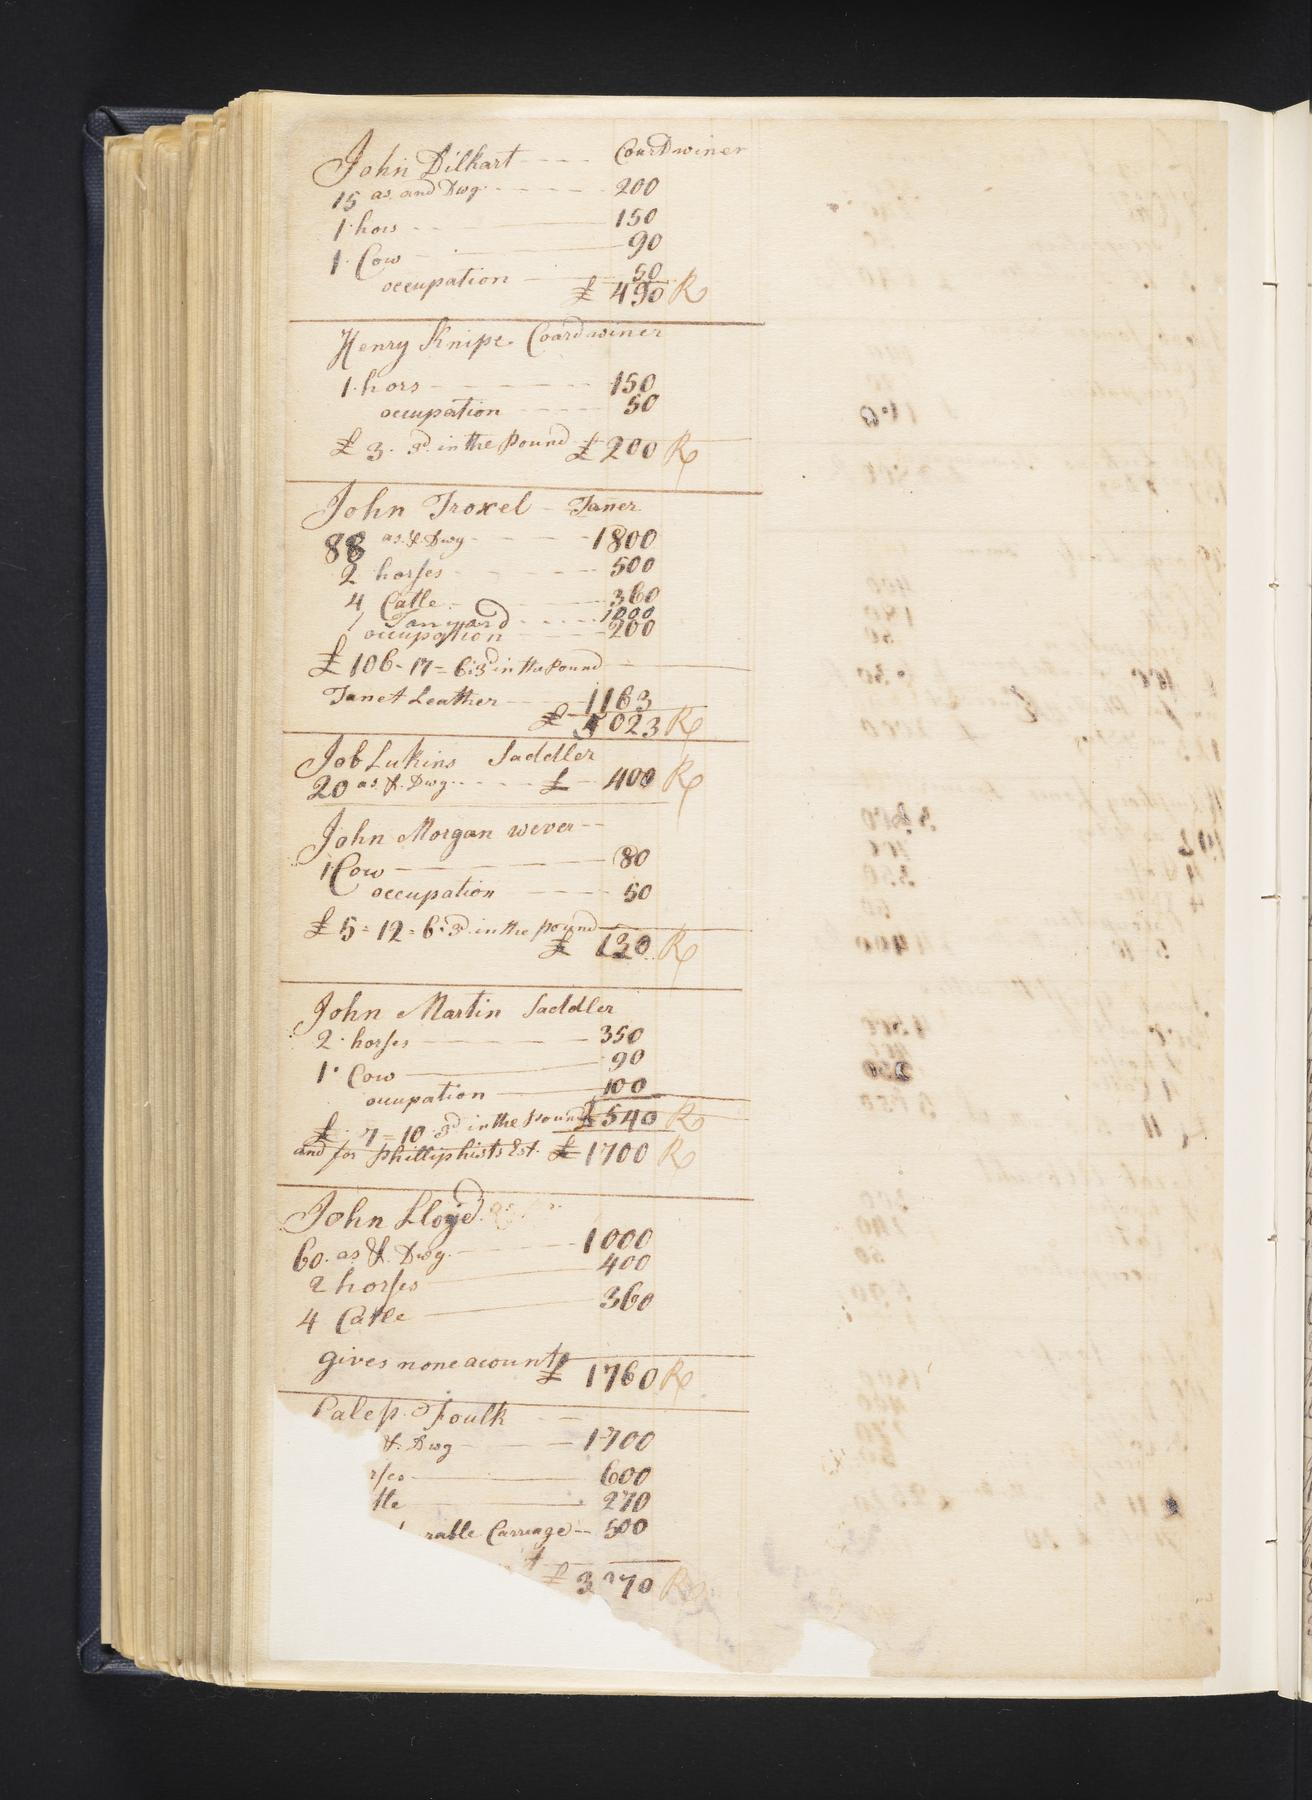 John Dilhart - - - - Coardwiner
15 as. and Dwg. - - - - - 200
1 hors - - - 150
1. Cow - - 90
occupation - - - 50
£ 490 R
Henry Knipe. Coardwiner
1. hors - - - - - 150
occupation - - - - 50
£ 3. 3d. in the pound £ 200 R
John Troxel - Taner
88 as. & Dwg - - - - 1800
2 horses - - - 500
4 Catle - - - 360
1 Tanyard - - - - - 1000
occupation - - - - - 200
£ 106 - 17 = 6: 3d in the pound
Tanet Leather - - - 1163
£ 5023 R
Job Lukins Saddler
20 as. & Dwg. - - - - £ - 400 R
John Morgan wever - -
1 Cow - - - 80
occupation - - - - 50
£ 5 = 12 = 6: 3d. in the pound
£ 130 R
John Martin Saddler
2. horses - - - - 350
1. Cow - 90
occupation - 100
£. 7 = 10. 3d in the pound £ 540 R
and for Phillip hists Est. £ 1700 R
John Lloyd.
60. as & Dwg. - - - 1000
2 horses - 400
4 Catle - 360
gives none acount
£ 1760 R
Calep. Foulk - -
&. Dwg - - - 1700
rses - 600
tle - 270
rable Carriage - - 500
£ 3 70 R